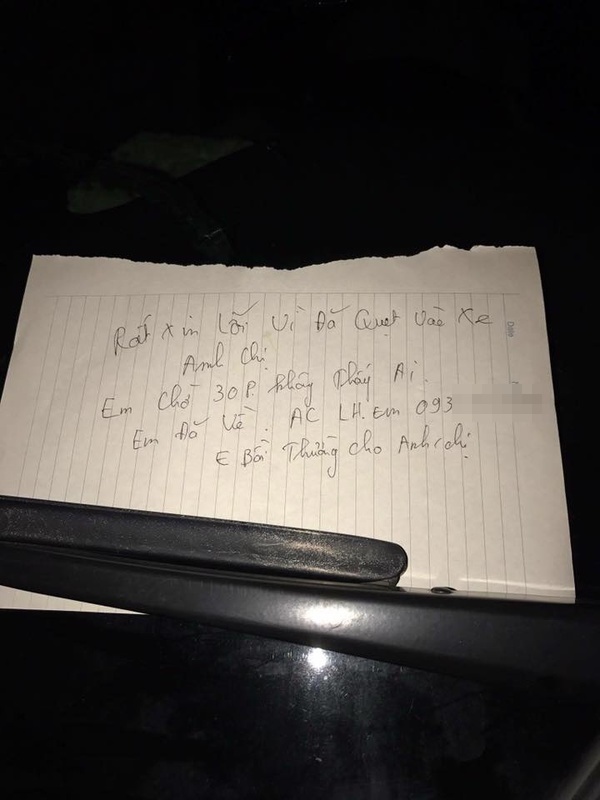 Rất xin lỗi vì đã quẹt vào xe
Anh chị
Em chờ 30 P. không thấy Ai.
Em Đã Về. AC LH. Em 093
E Bồi Thường cho Anh/chị
Date